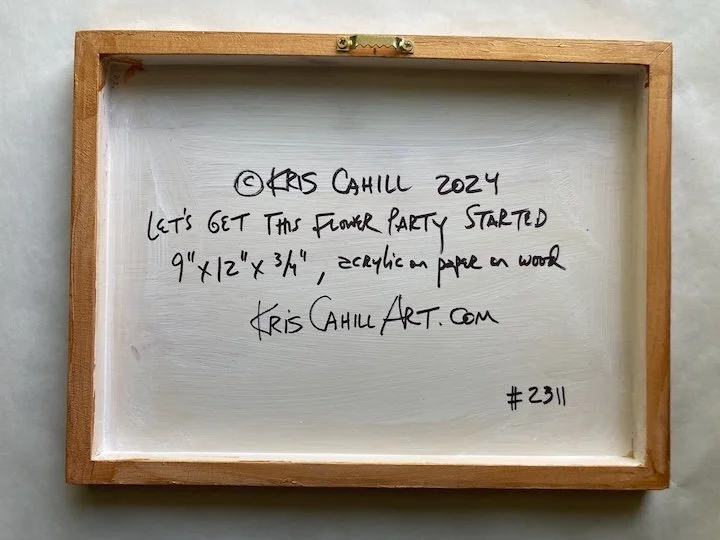 © KRIS CAHILL 2024
LET'S GET THIS FLOWER PARTY STARTED
9" x 12" x 3/4", acrylic on paper on wood
KRIS CAHILL ART.COM
#2311